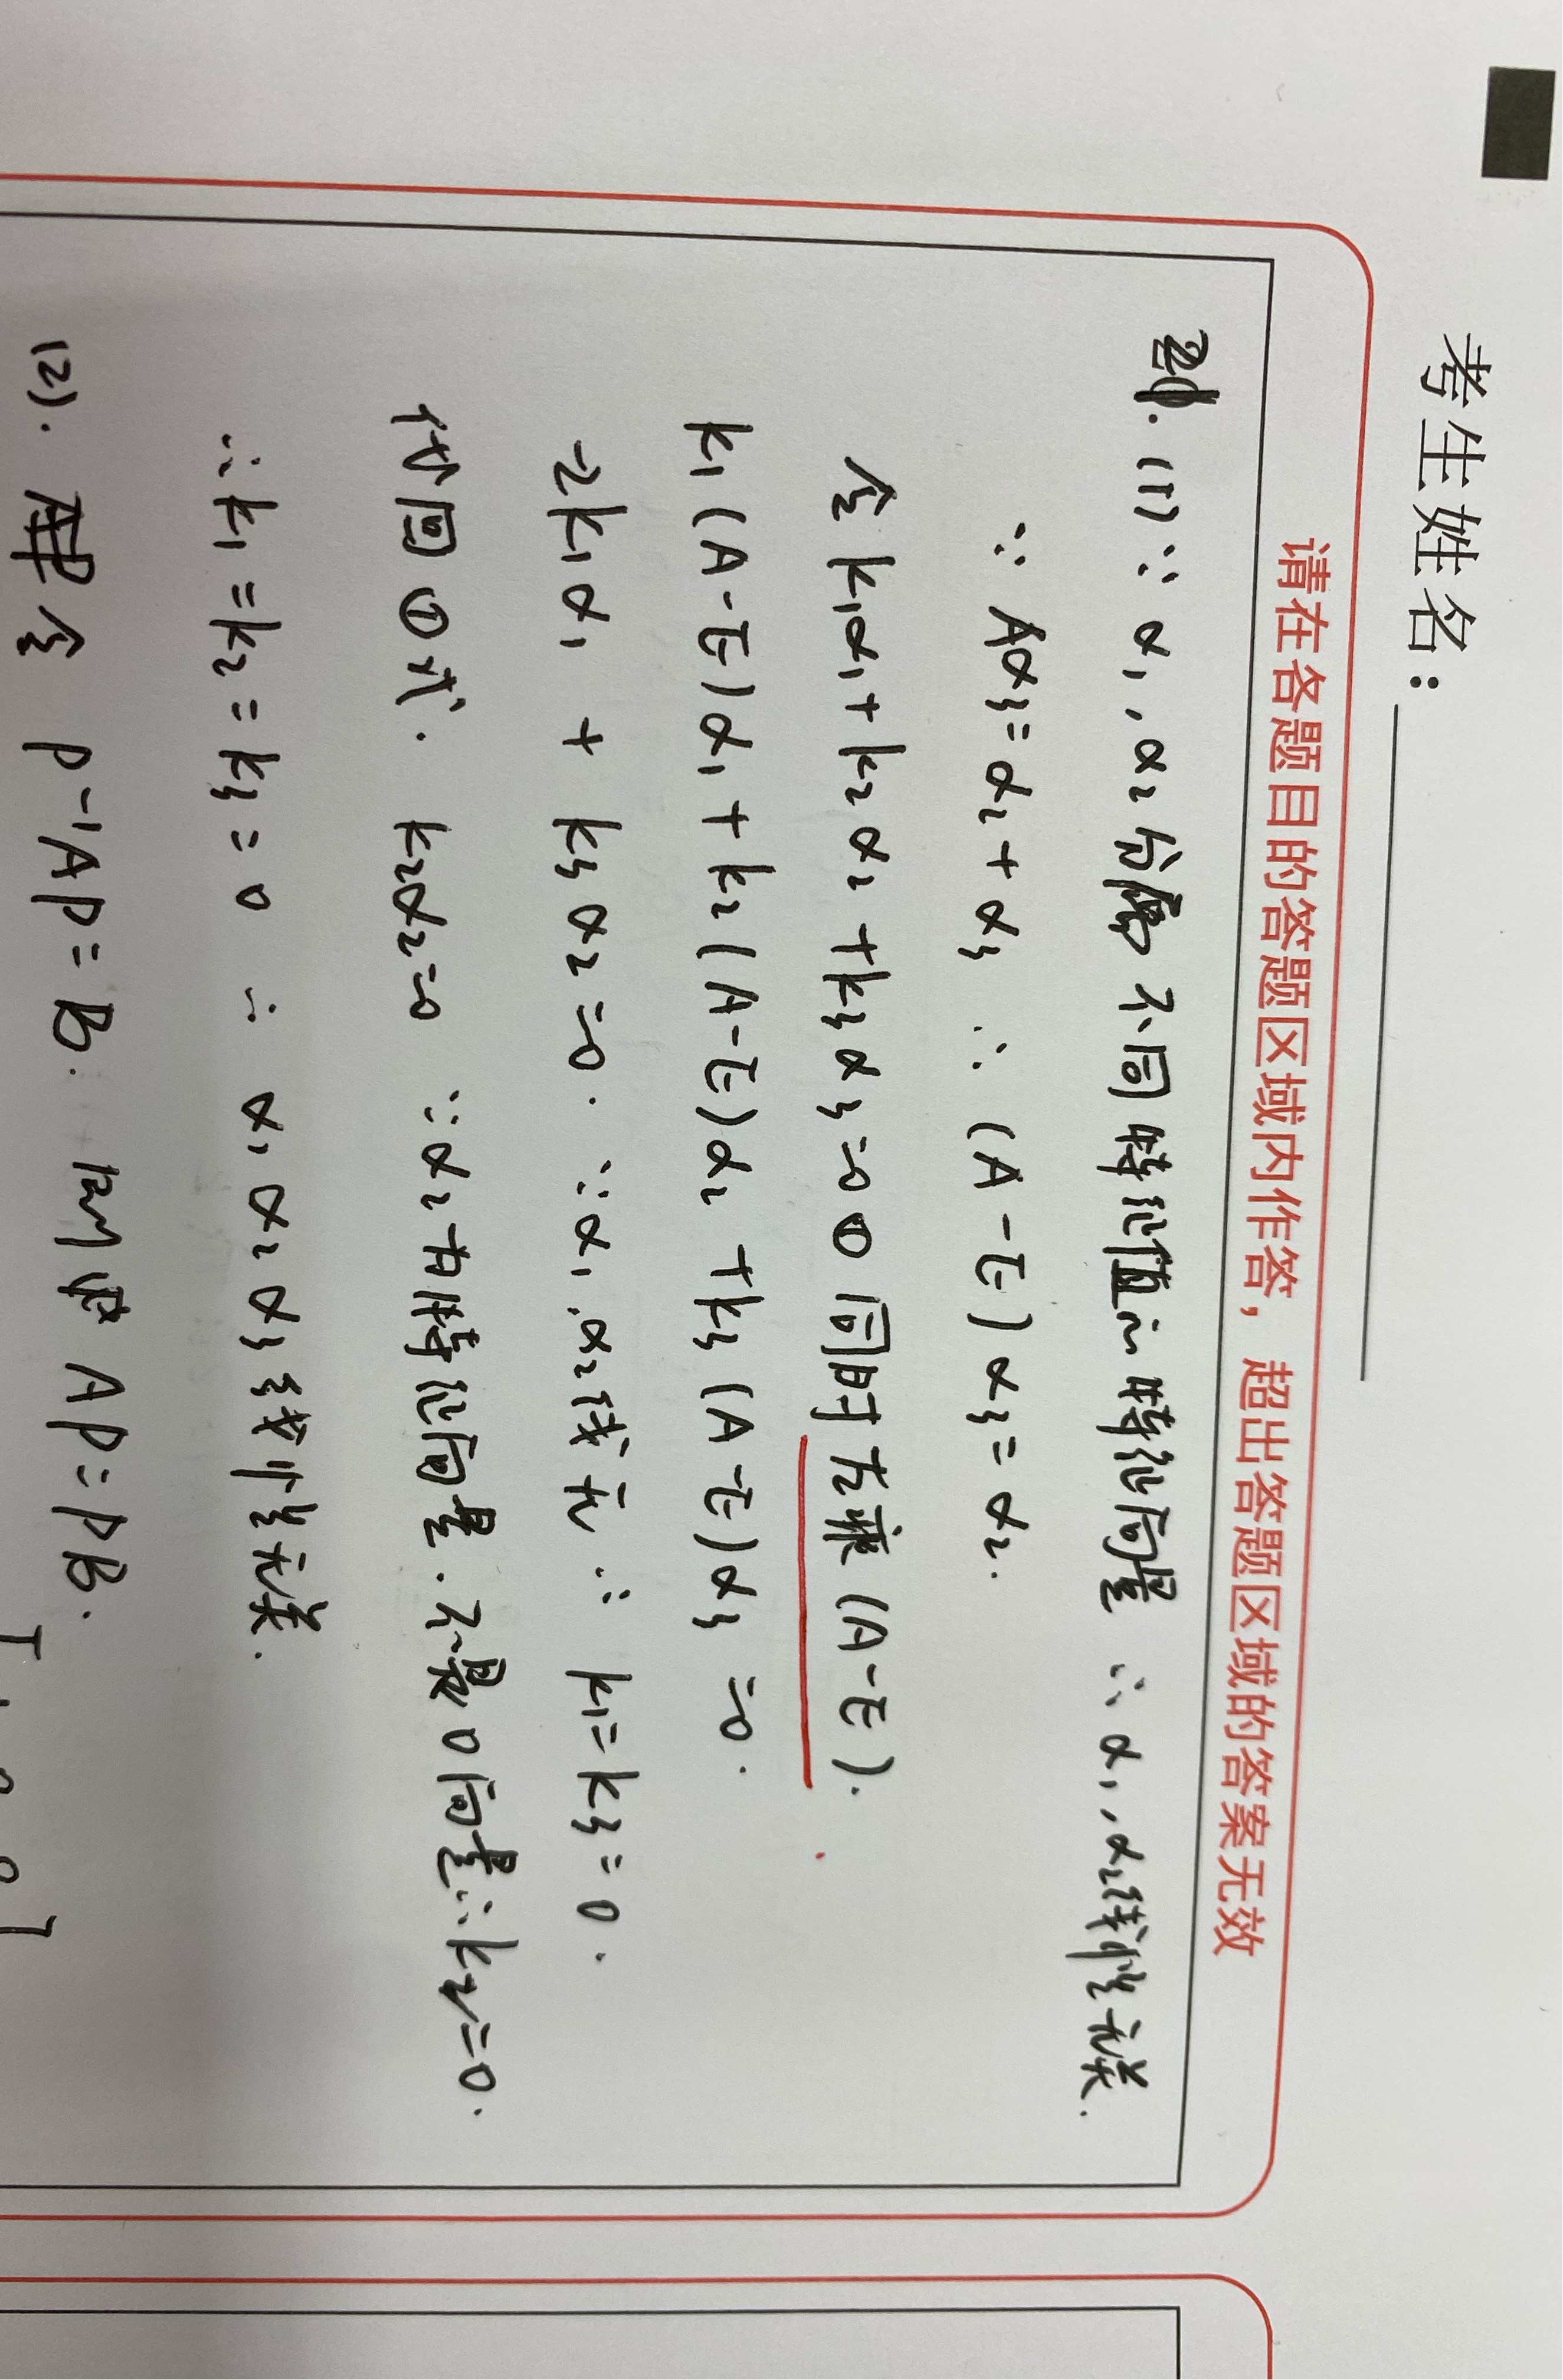 考生姓名：
请在各题目的答题区域内作答，超出答题区域的答案无效
(1) ∵ α₁, α₂ 分属不同特征值的特征向量 ∴ α₁, α₂线性无关.
∵ Aα₃=α₂+α₃ ∴ (A-E)α₃=α₂.
令 k₁α₁+k₂α₂+k₃α₃=0 ① 同时左乘 (A-E).
k₁(A-E)α₁+k₂(A-E)α₂+k₃(A-E)α₃=0.
-2k₁α₁+k₃α₂=0. ∵α₁,α₂线无 ∴ k₁=k₃=0.
代回①式. k₂α₂=0 ∵α₂为特征向量.不是0向量∴k₂=0.
∴ k₁=k₂=k₃=0 ∴ α₁ α₂ α₃ 线性无关.
(2). 令 P⁻¹AP=B. 则 AP=PB.